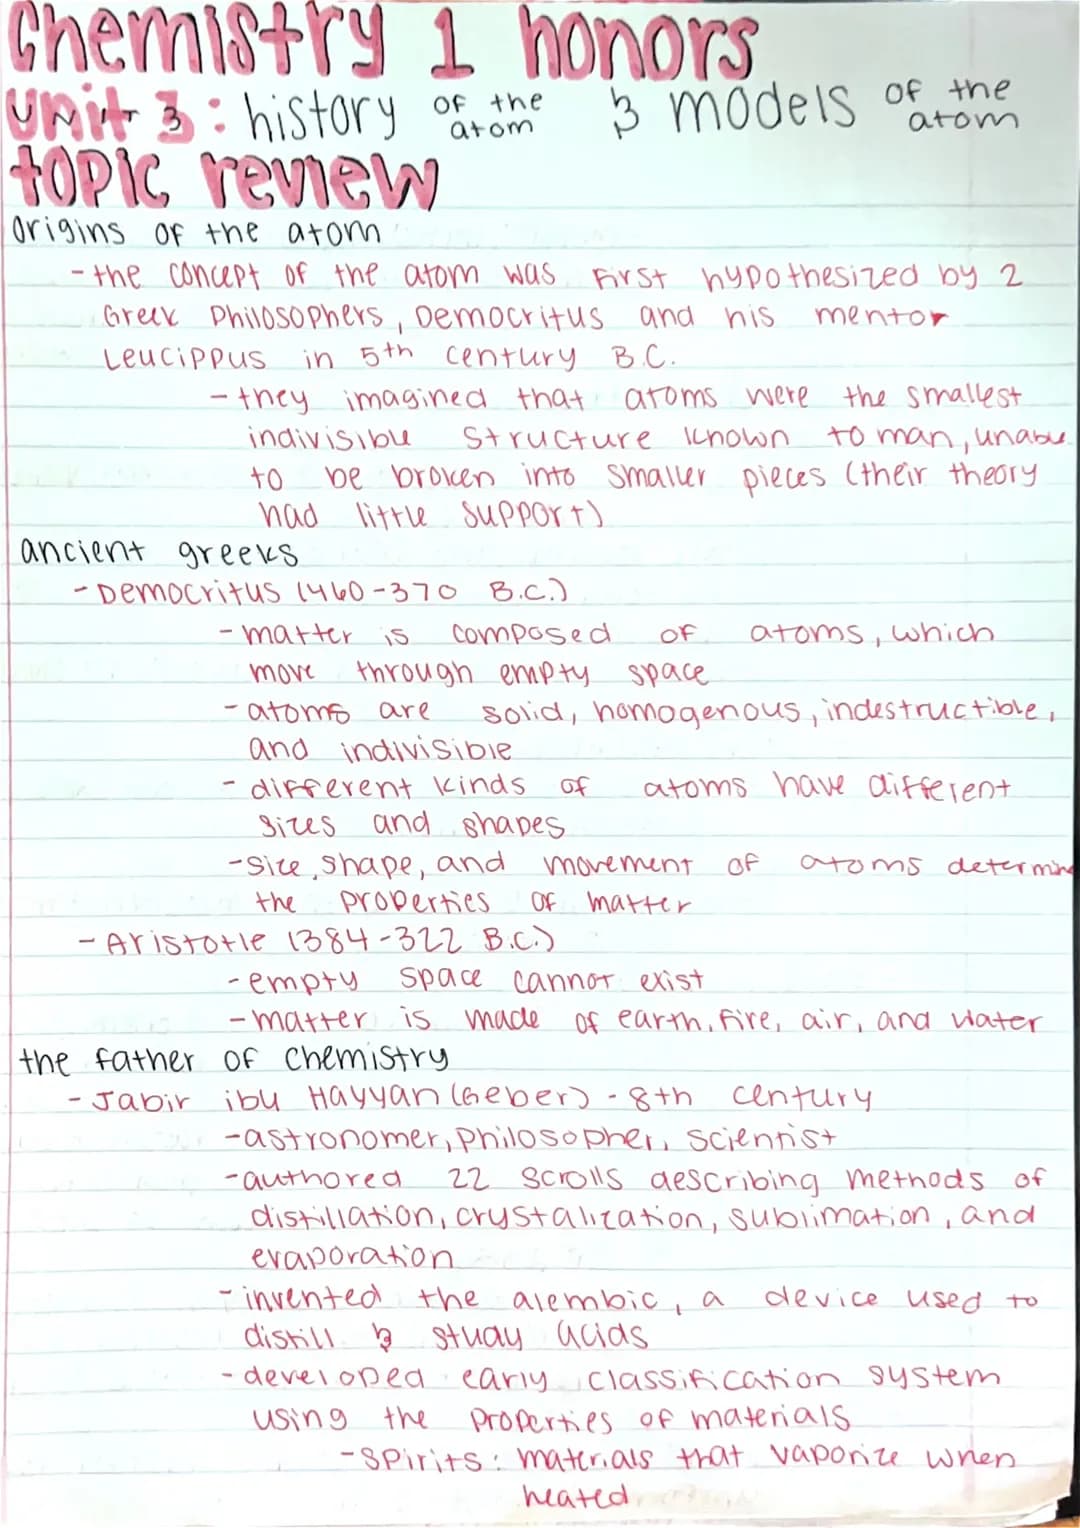 Chemistry 1 honors
Unit 3: history of the atom & models of the atom
topic review
Origins of the atom
- the concept of the atom was first hypothesized by 2
Greek Philosophers, Democritus and his mentor
Leucippus in 5th century B.C.
- they imagined that atoms were the smallest
indivisible structure known to man, unable
to be broken into smaller pieces (their theory
had little support)
ancient greeks
- Democritus (460-370 B.C.)
- matter is composed of atoms, which
move through empty space
- atoms are solid, homogenous, indestructible,
and indivisible
- different kinds of atoms have different
sizes and shapes
- size, shape, and movement of atoms determine
the properties of matter
- Aristotle (384-322 B.C.)
- empty space cannot exist
- matter is made of earth, fire, air, and water
the father of chemistry
- Jabir ibu Hayyan (Geber) - 8th century
- astronomer, philosopher, scientist
- authored 22 scrolls describing methods of
distillation, crystalization, sublimation, and
evaporation
- invented the alembic, a device used to
distill & study acids
- developed early classification system
using the properties of materials
- Spirits: materials that vaporize when
heated